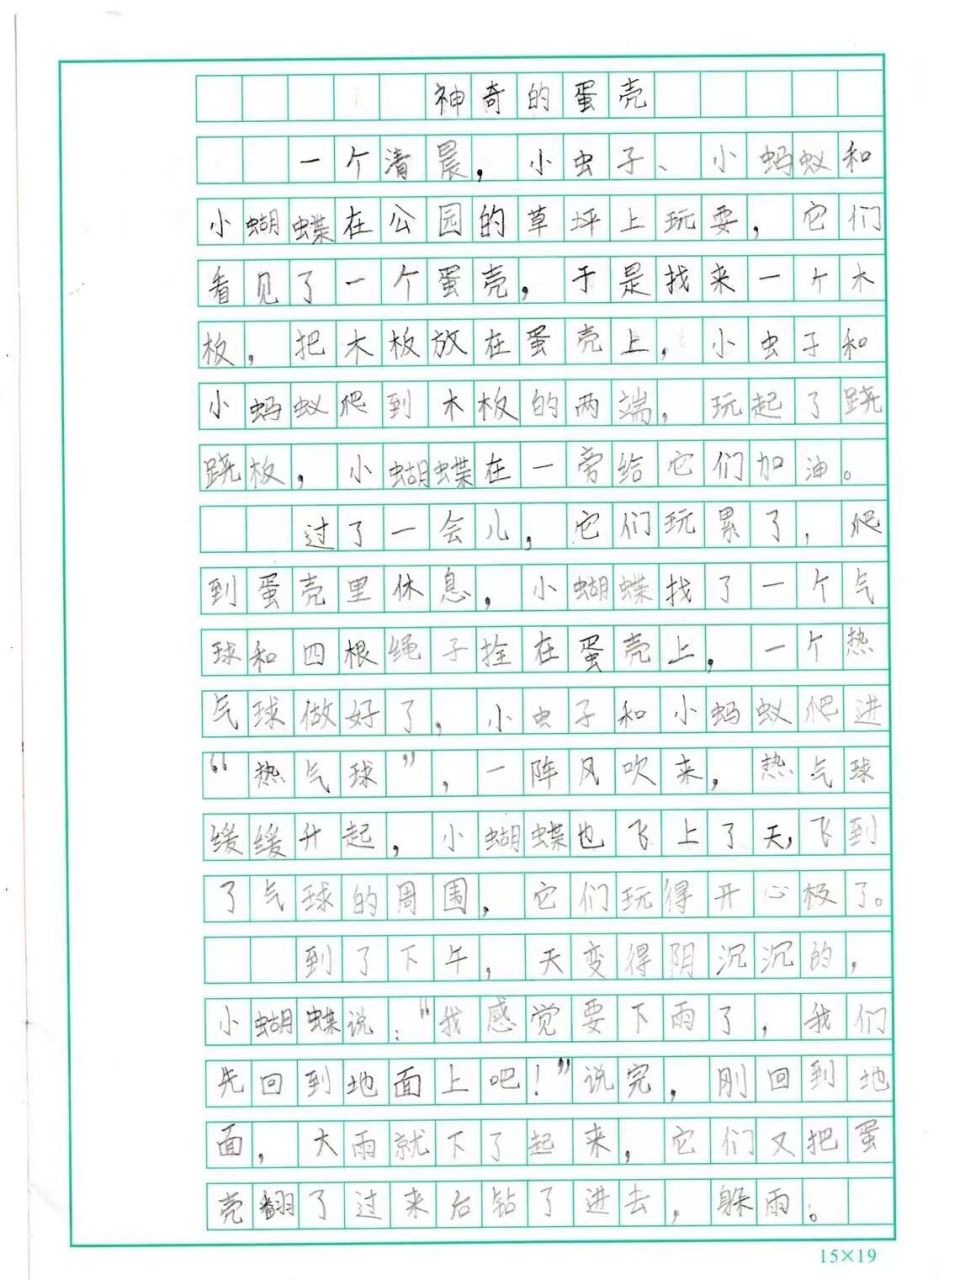 神奇的蛋壳
一个清晨，小虫子、小蚂蚁和
小蝴蝶在公园的草坪上玩耍，它们
看见了一个蛋壳，于是找来一个木
板，把木板放在蛋壳上，小虫子和
小蚂蚁爬到木板的两端，玩起了跷
跷板，小蝴蝶在一旁给它们加油。
过了一会儿，它们玩累了，爬
到蛋壳里休息，小蝴蝶找了一个气
球和四根绳子拴在蛋壳上，一个热
气球做好了，小虫子和小蚂蚁爬进
“热气球”，一阵风吹来，热气球
缓缓升起，小蝴蝶也飞上了天，飞到
了气球的周围，它们玩得开心极了。
到了下午，天变得阴沉沉的，
小蝴蝶说：“我感觉要下雨了，我们
先回到地面上吧！”说完，刚回到地
面，大雨就下了起来，它们又把蛋
壳翻了过来后钻了进去，躲雨。
15×19